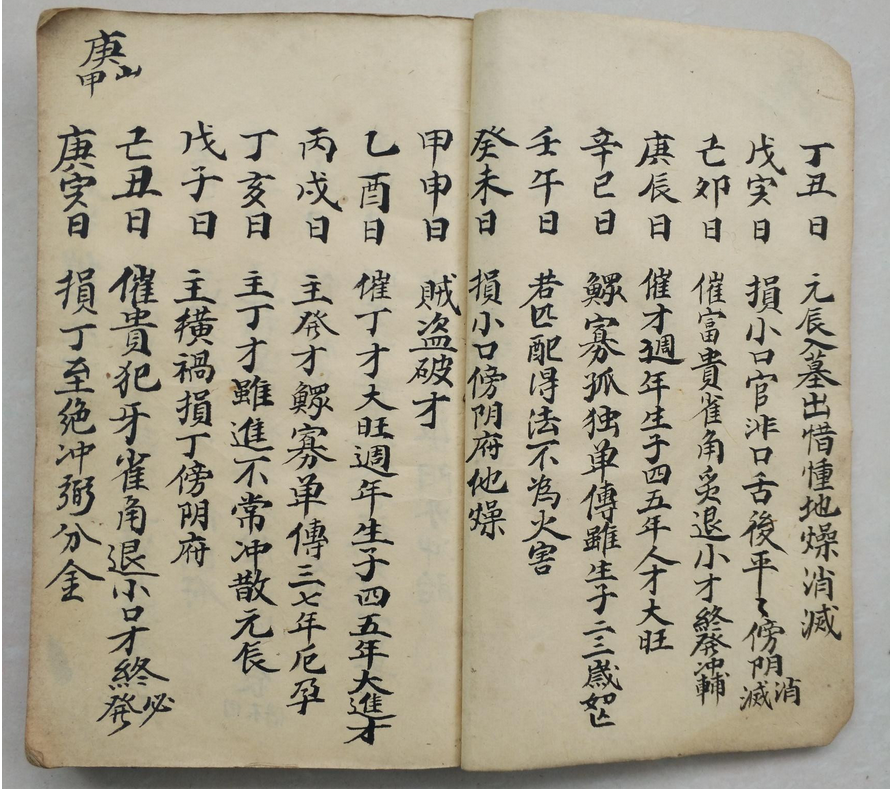 丁丑日 元辰入墓出惜憧地燥消滅
戊寅日 損小口官非口舌後平〻傍阴消滅
己卯日 催富貴雀角爻退小才終發冲輔
庚辰日 催才週年生子四五年人才大旺
辛巳日 鰥寡孤独单傳雖生子二三歲如亡
壬午日 若匹配得法不為火害
癸未日 損小口傍阴府地燥
甲申日 賊盗破才
乙酉日 催丁才大旺週年生子四五年大進才
丙戌日 主發才鰥寡单傳三七年厄孕
丁亥日 主丁才雖進不常冲散元辰
戊子日 主横禍損丁傍阴府
己丑日 催貴犯牙雀角退小口才終必發
庚寅日 損丁至绝冲弼分金
庚山甲